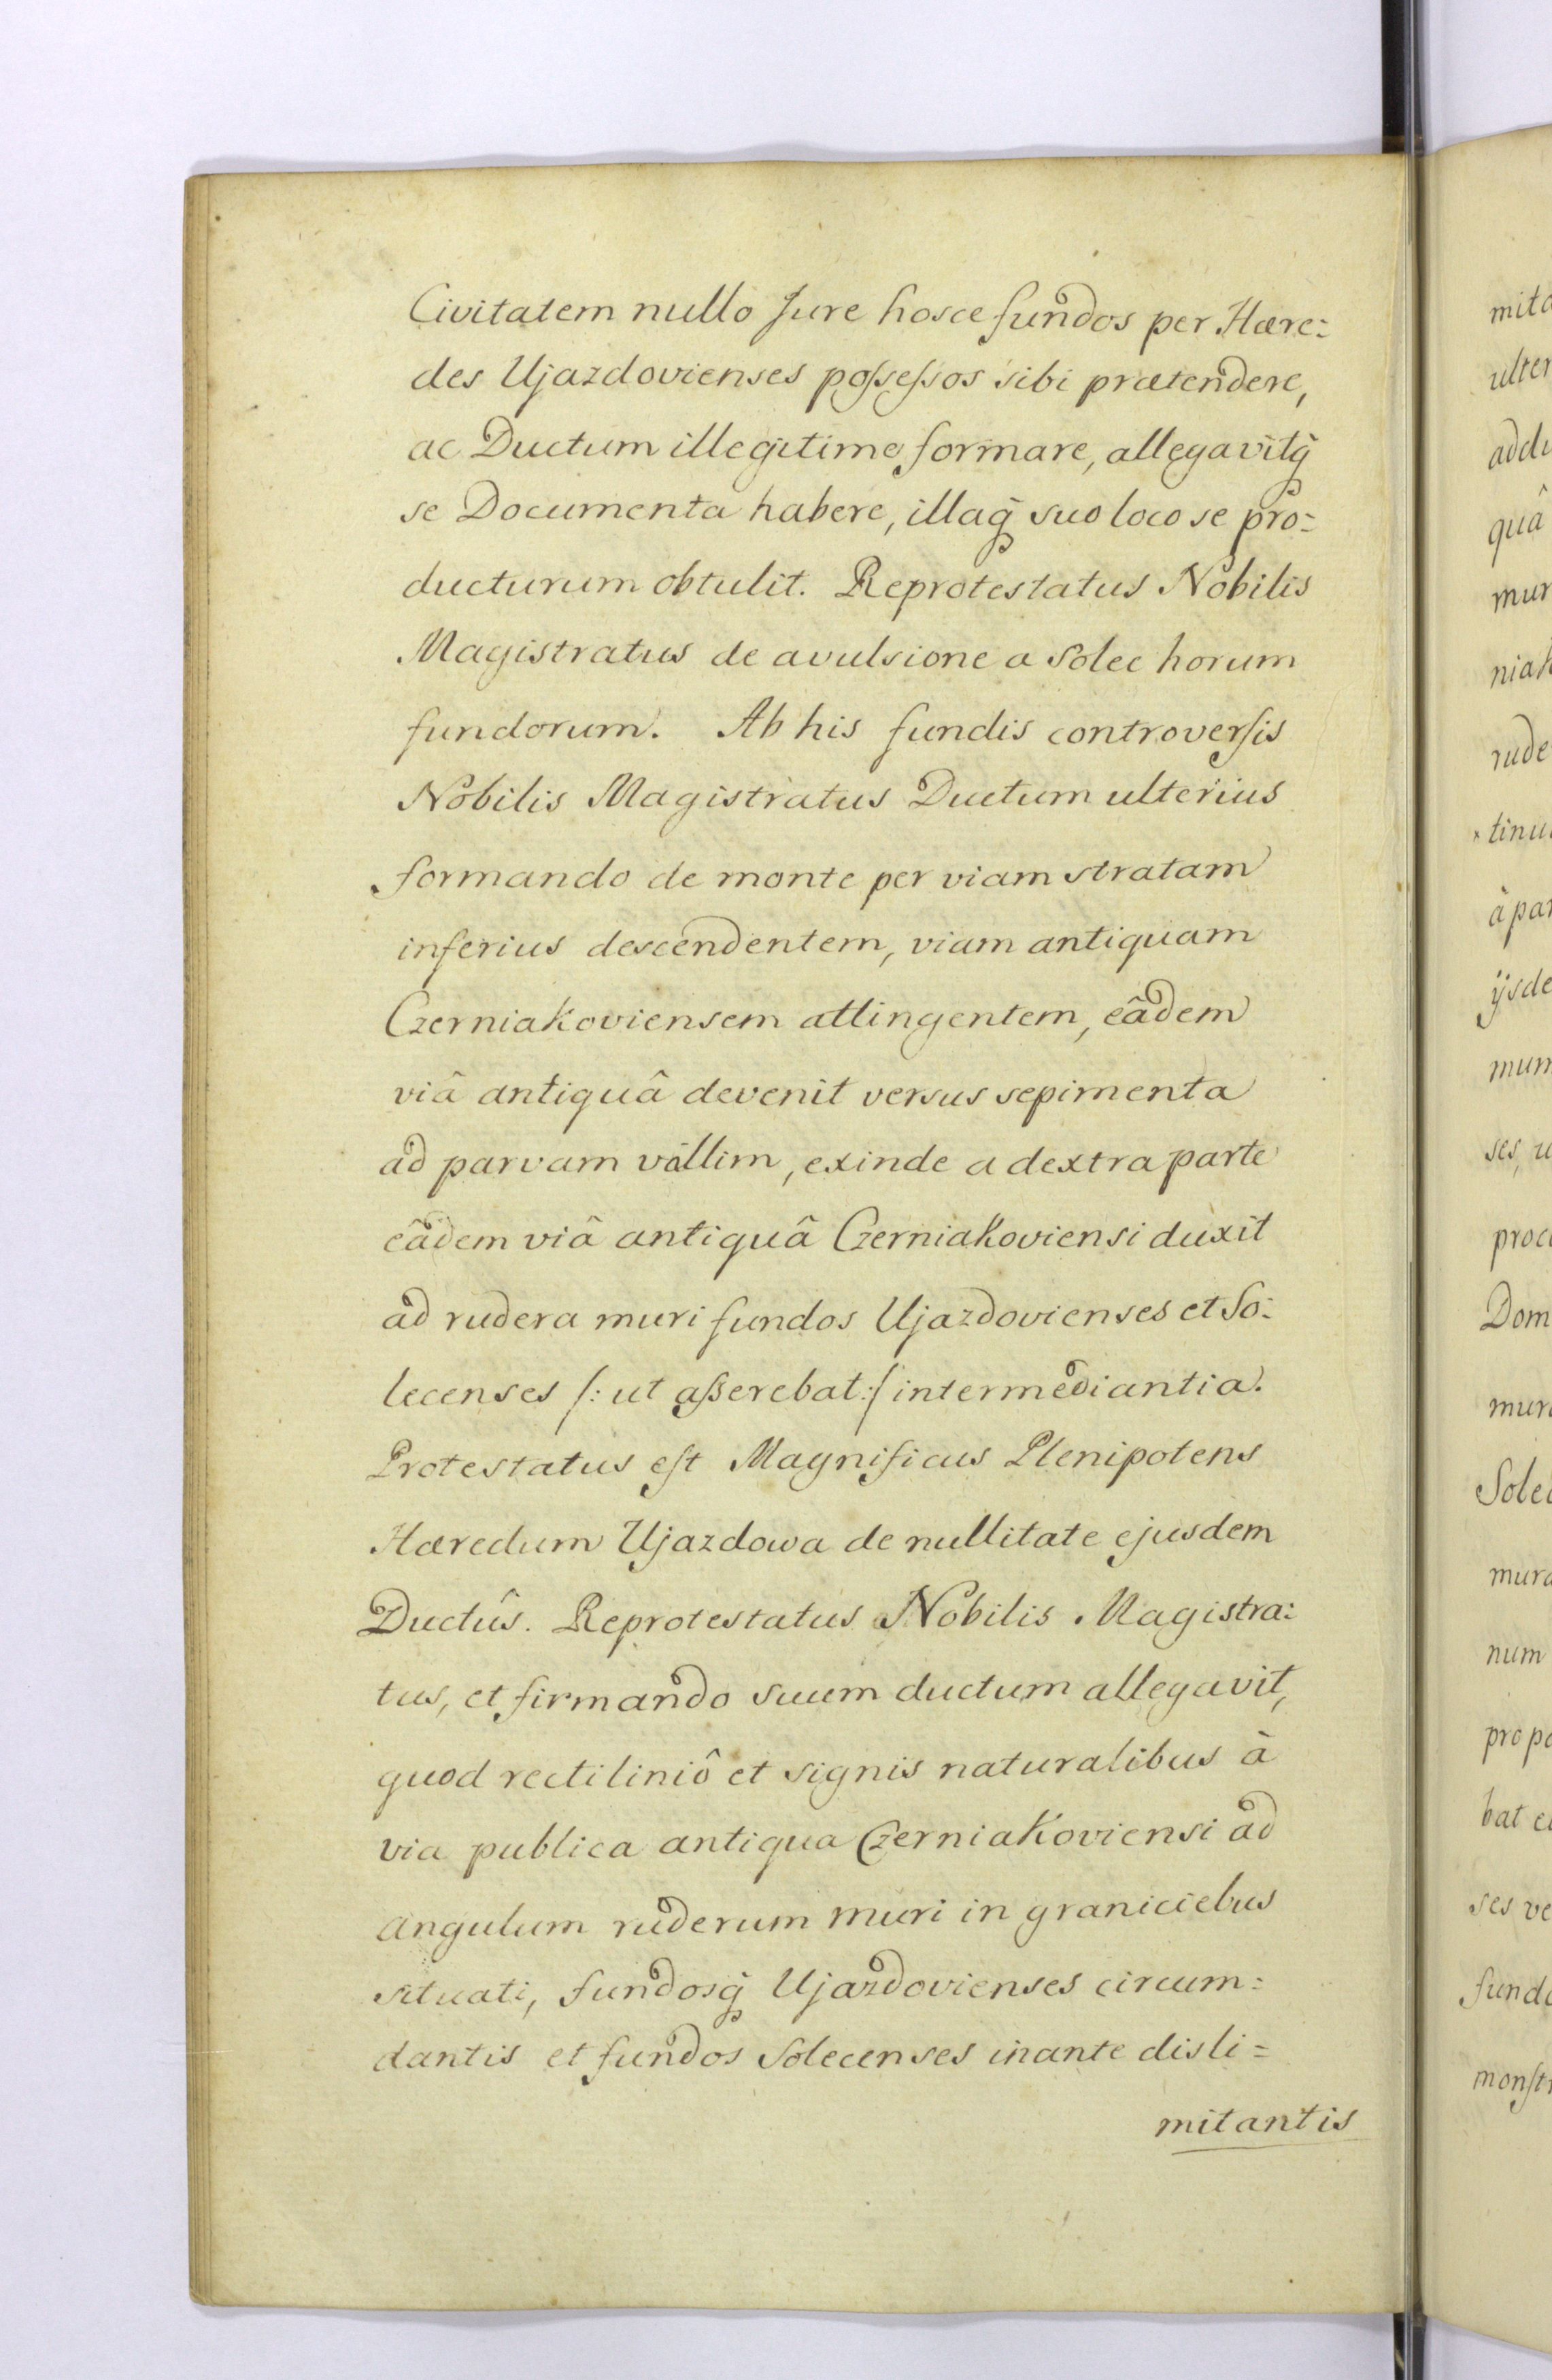 Civitatem nullo Jure hosce fundos per Hære:
des Ujazdovienses possessos sibi prætendere,
ac Ductum illegitime formare, allegavitq̃
se Documenta habere, illaq̃ suo loco se pro:
ducturum obtulit. Reprotestatus Nobilis
Magistratus de avulsione a Solec horum
fundorum. Ab his fundis controversis
Nobilis Magistratus Ductum ulterius
formando de monte per viam stratam
inferius descendentem, viam antiquam
Czerniakoviensem attingentem, eâdem
viâ antiquâ devenit versus sepimenta
ad parvam vallim, exinde a dextra parte
eâdem viâ antiquâ Czerniakoviensi duxit
ad rudera muri fundos Ujazdovienses et So:
lecenses /: ut aßerebat :/ intermediantia.
Protestatus est Magnificus Plenipotens
Hæredum Ujazdowa de nullitate ejusdem
Ductûs. Reprotestatus Nobilis Magistra:
tus, et firmando suum ductum allegavit,
quod rectiliniô et signis naturalibus à
via publica antiqua Czerniakoviensi ad
angulum ruderum muri in graniciebus
situati, fundosq̃ Ujazdovienses circum:
dantis et fundos Solecenses inante disli:
mitantis
mita
ulter
addu
quâ
mur
niak
rude
tinu
à par
ijsde
mum
ses, u
proc
Dom
muri
Solec
mura
num
propo
bat e
ses ve
fundo
monstr